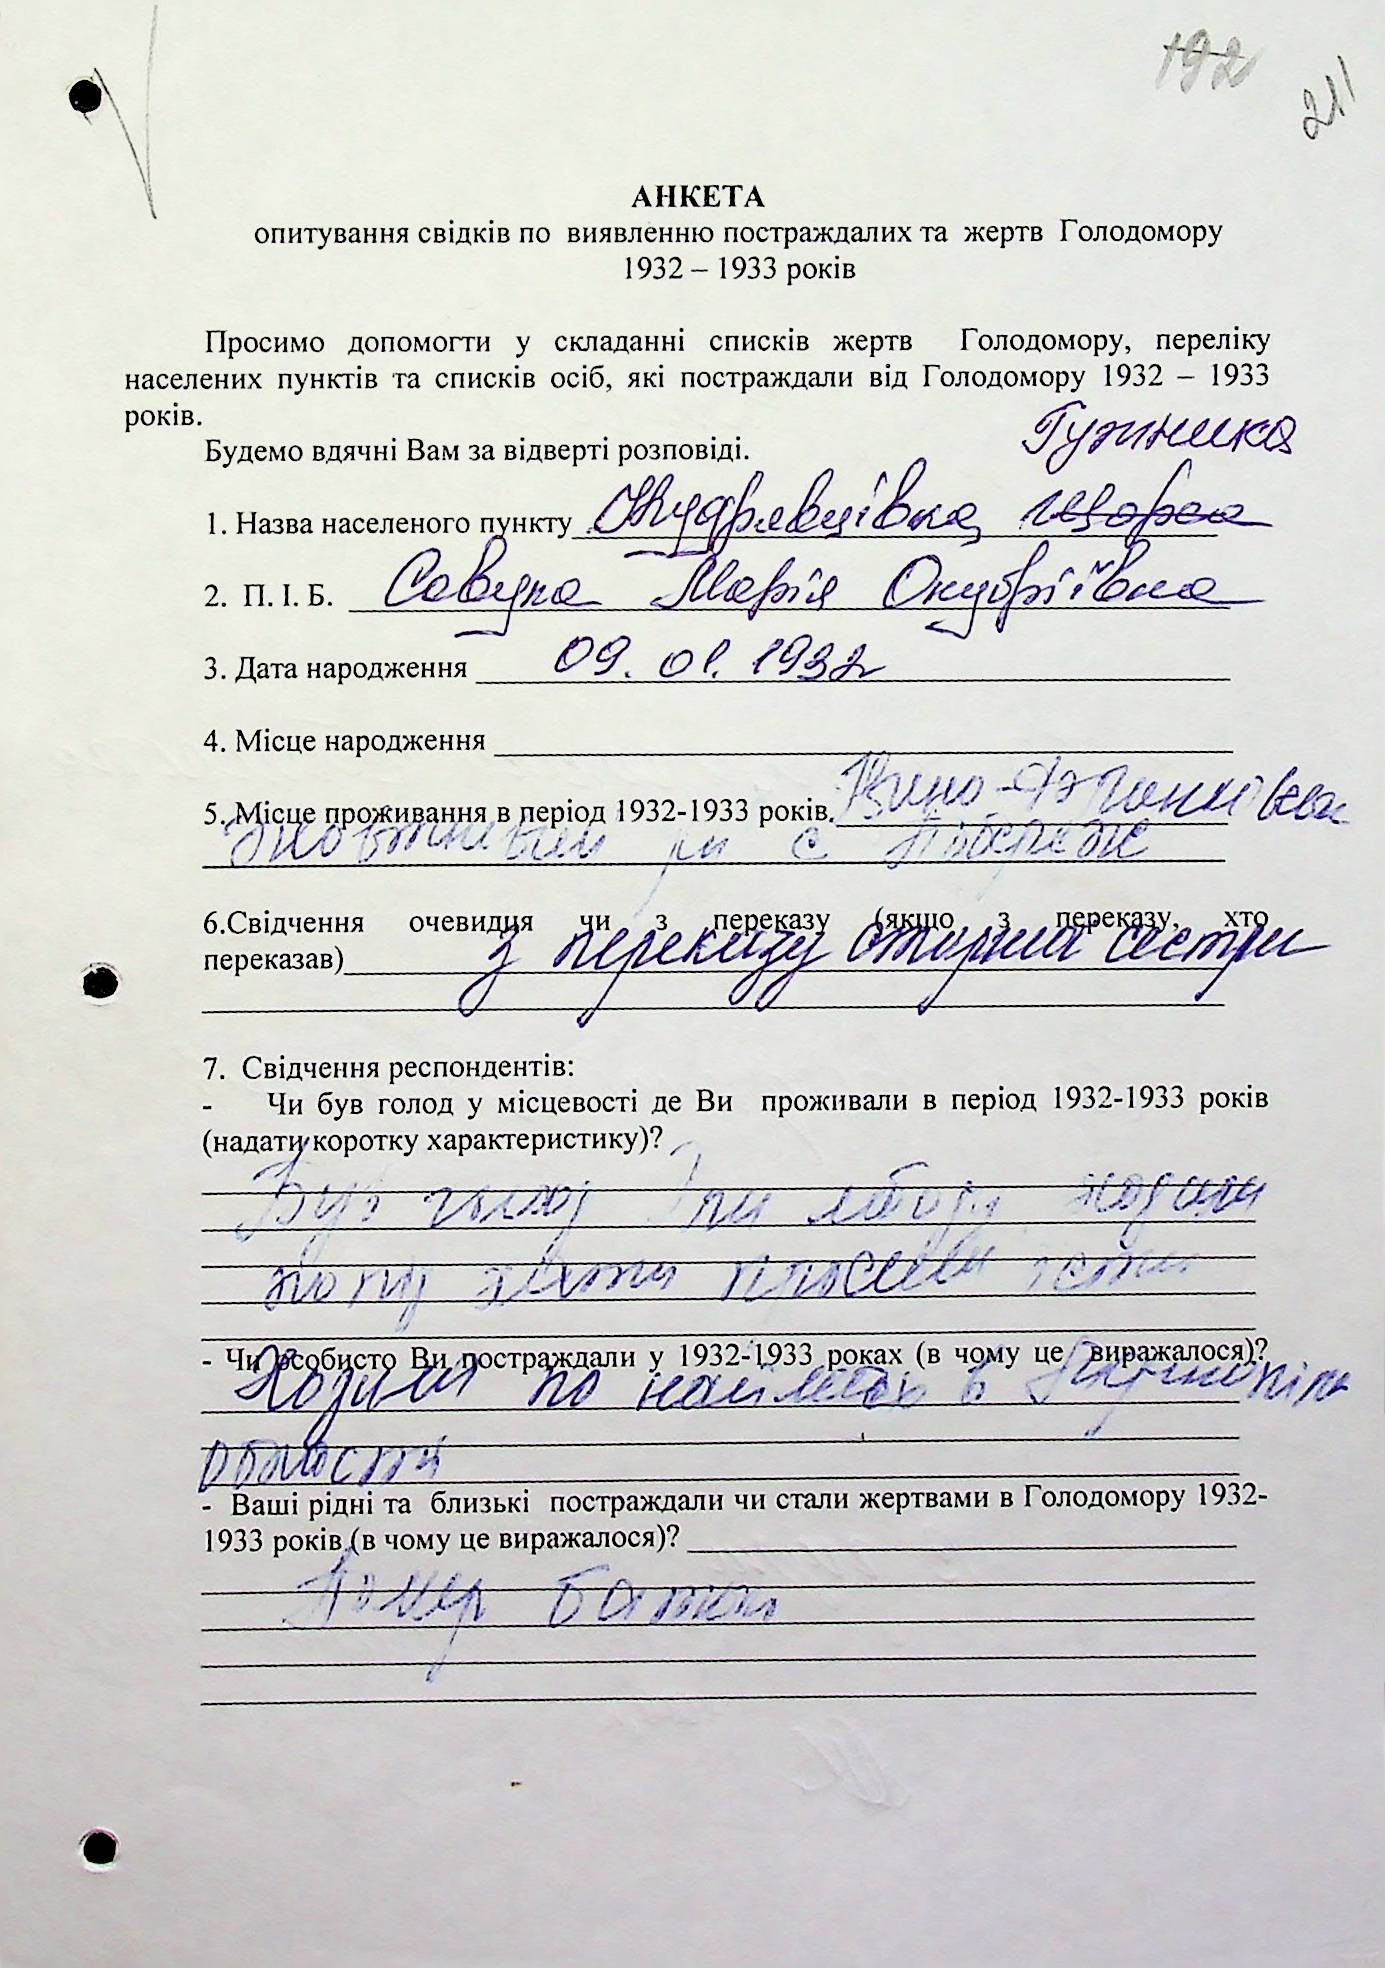 192
211
АНКЕТА
опитування свідків по виявленню постраждалих та жертв Голодомору
1932 – 1933 років
Просимо допомогти у складанні списків жертв Голодомору, переліку
населених пунктів та списків осіб, які постраждали від Голодомору 1932 – 1933
років.
Будемо вдячні Вам за відверті розповіді.
1. Назва населеного пункту Кудрявцівка, Щорса
2. П. І. Б. Савука Марія Онуфріївна
3. Дата народження 09. 01. 1932
4. Місце народження
5. Місце проживання в період 1932-1933 років. Івано-Франківська
Жовтневий рн с Побереже
6.Свідчення очевидця чи з переказу (якщо з переказу, хто
переказав) з переказу старша сестри
7. Свідчення респондентів:
- Чи був голод у місцевості де Ви проживали в період 1932-1933 років
(надати коротку характеристику)?
Був голод їли лободу ходили
попід хати просили їсти
- Чи особисто Ви постраждали у 1932-1933 роках (в чому це виражалося)?
Ходили по наймах в Тернопіль
області
- Ваші рідні та близькі постраждали чи стали жертвами в Голодомору 1932-
1933 років (в чому це виражалося)?
Помер батько